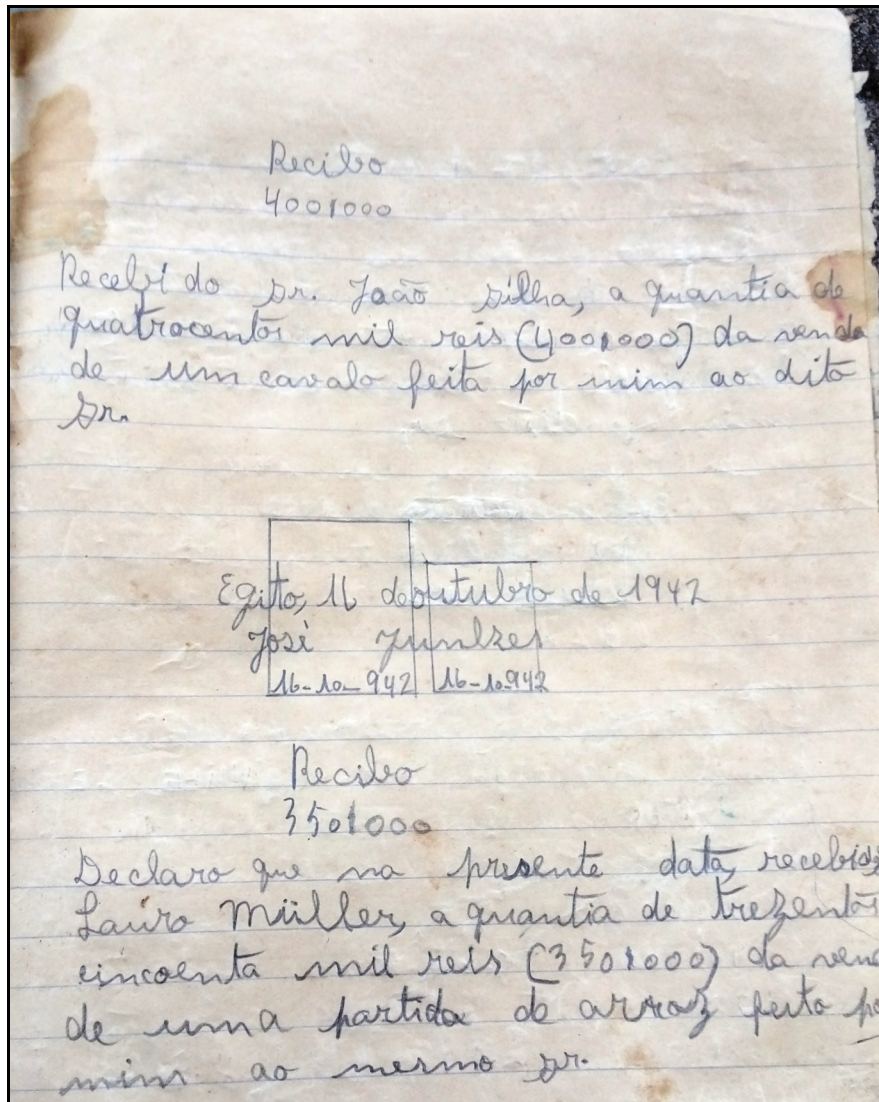 Recibo
400$000
Recebi do Sr. João Silha, a quantia de
quatrocentos mil reis (400$000) da venda
de um cavalo feita por mim ao dito
Sr.
Egito, 16 de outubro de 1942
José
16-10-942 16-10-942
Recibo
350$000
Declaro que na presente data, recebi
Lauro Müller, a quantia de trezentos
cincoenta mil reis (350$000) da
de uma partida de arroz feita
mim ao mesmo sr.